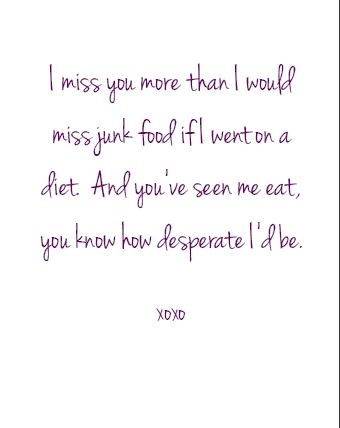 I miss you more than I would
miss junk food if I went on a
diet. And you've seen me eat,
you know how desperate I'd be.
xoxo